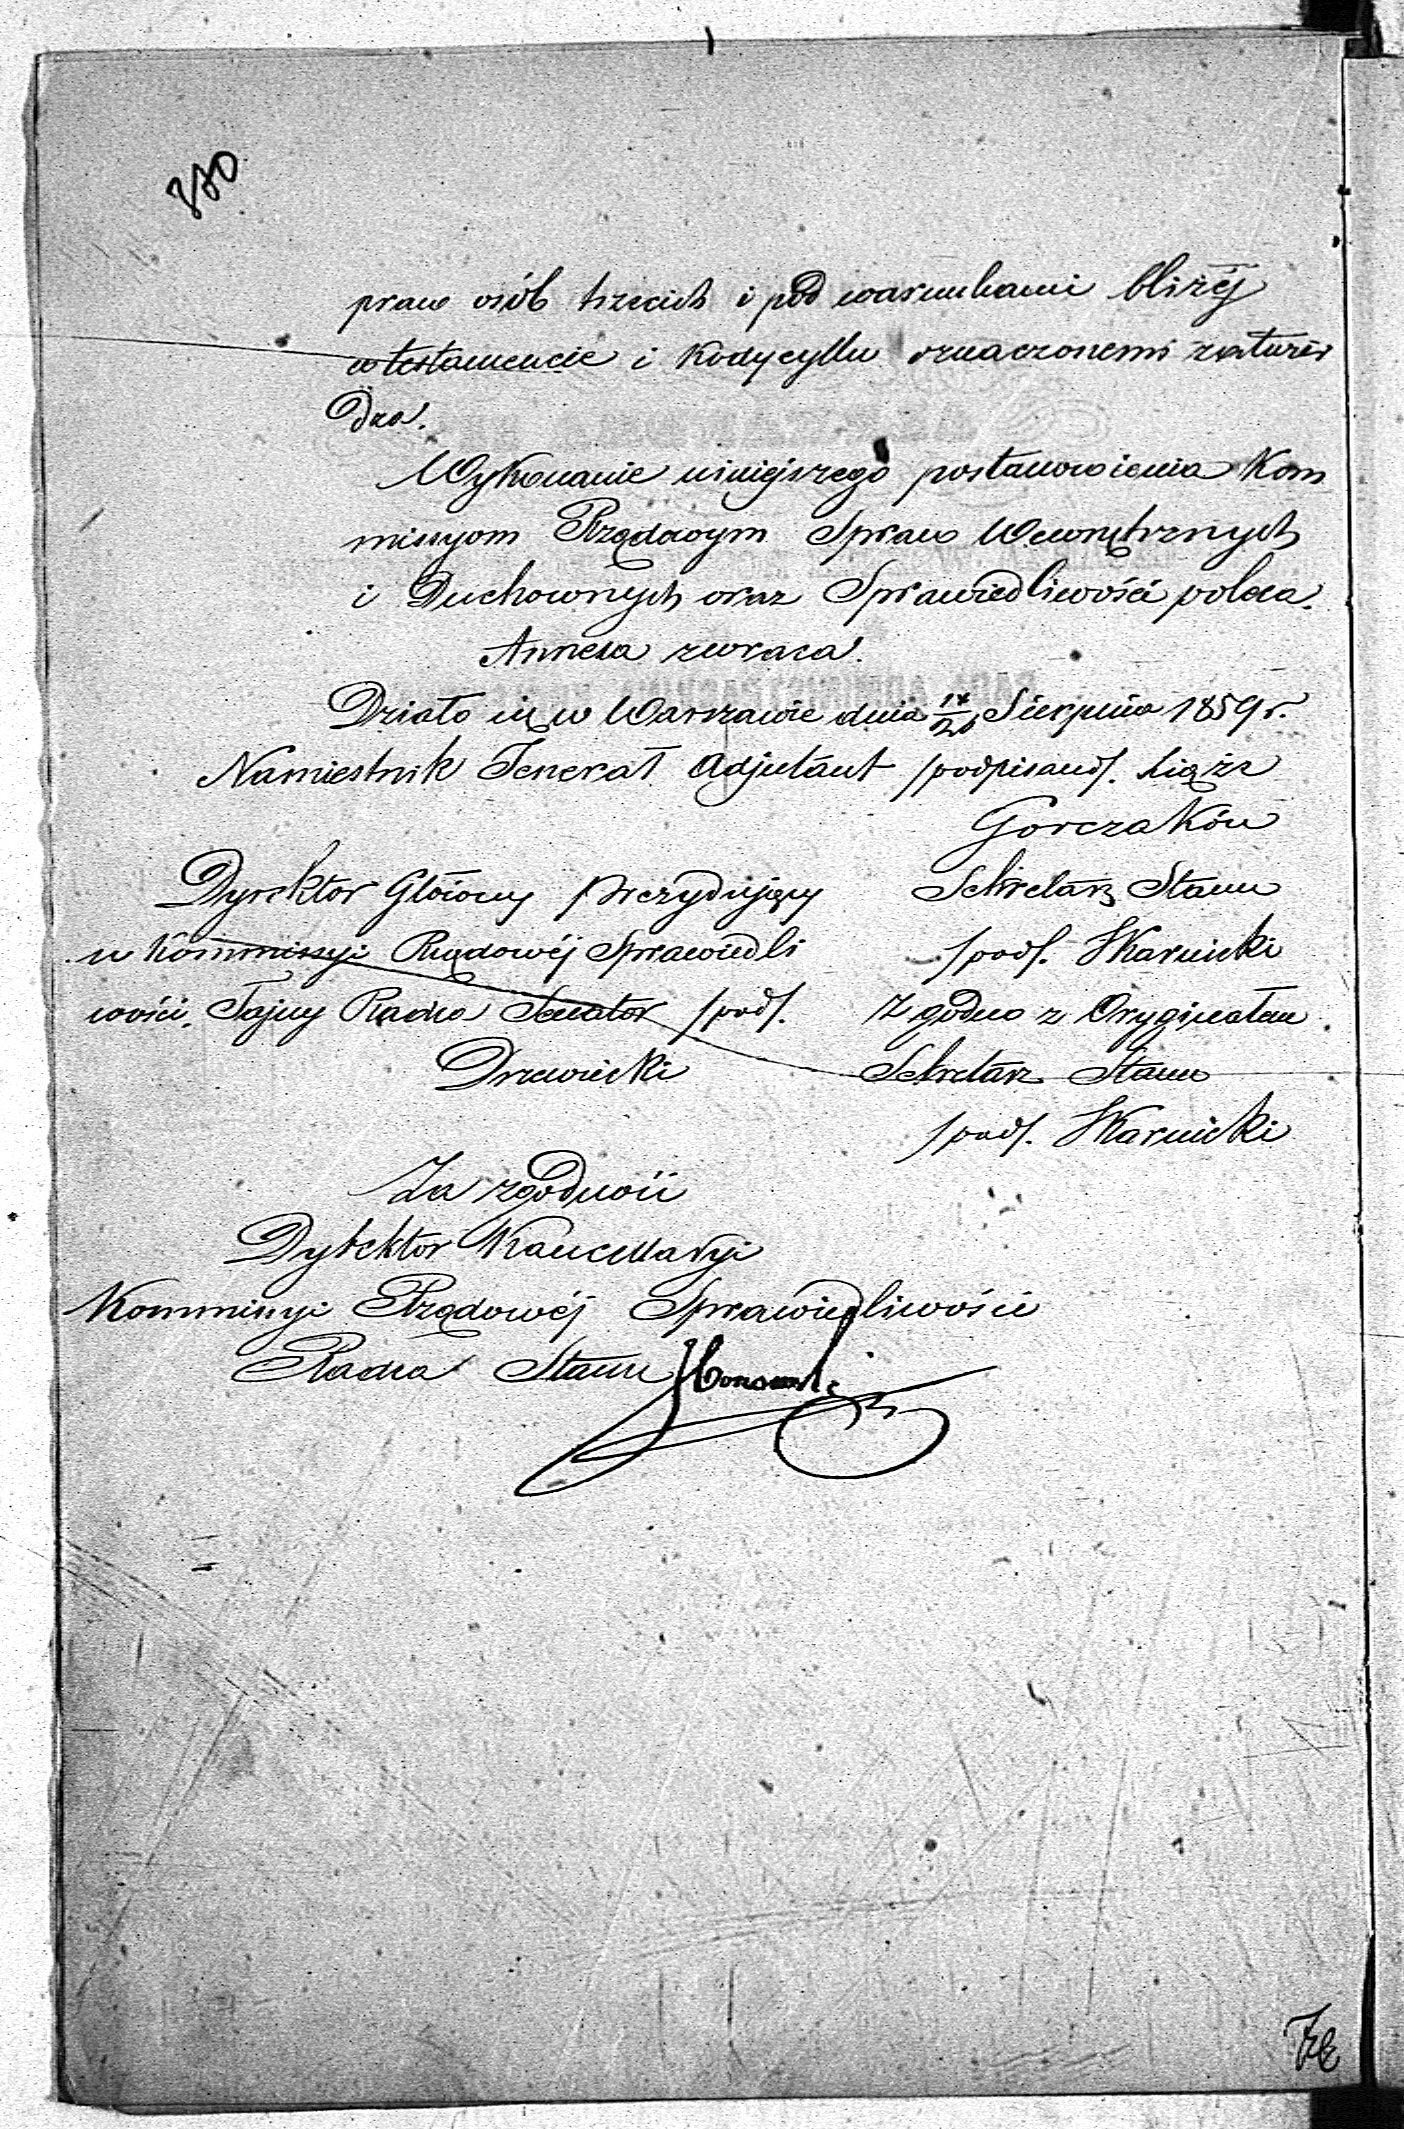 370
praw osób trzecich i pod warunkami bliżéj
w testamencie i Kodycyllu oznaczonemi zatwier
dza.
Wykonanie niniejszego postanowienia Kom
missyom Rządowym Spraw Wewnętrznych
i Duchownych oraz Sprawiedliwości poleca.
Annexa zwraca.
Działo się w Warszawie dnia 14/26 Sierpnia 1859 r.
Namiestnik Jenerał Adjutant /podpisand/. Xiąże
Gorczaków
Dyrektor Główny Prezydujący
w Kommissyi Rządowéj Sprawiedli
wości, Tajny Radca Senator /pod/.
Drzewiecki
Sekretarz Stanu
/pod/. J Karnicki
Zgodno z Oryginałem
Sekretarz Stanu
/pod/. J Karnicki
Za zgodność
Dyrektor Kancellaryi
Kommissyi Rządowéj Sprawiedliwości
Radca Stanu